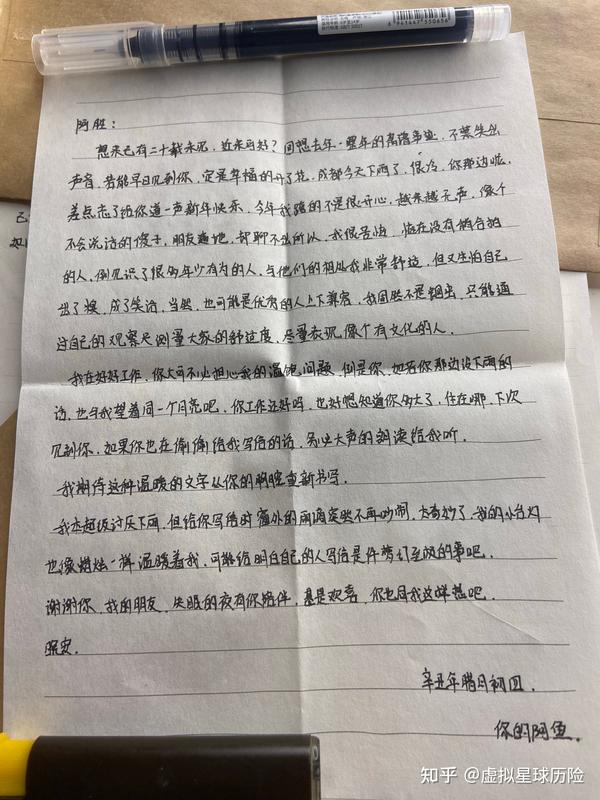 6941447550656
阿胜：
想来已有二十载未见，近来可好？回想去年一整年的离谱事迹，不禁笑出
声音，若能早日见到你，定是幸福的开了花。成都今天下雨了，很冷，你那边呢，
差点忘了给你道一声新年快乐，今年我踏的不是很开心，越来越无声，像个
不会说话的傻子，朋友遍地，却聊不出所以，我很苦恼，临在没有
的人，倒见识了很多年少有为的人，与他们的相处我非常舒适，但又生怕自己
出了糗，成了笑话，当然，也可能是优秀的人上下兼容，我固然不是翘楚，只能通
过自己的观察足测量大家的舒适度，尽量表现像个有文化的人。
我在好好工作，你大可不必担心我的温饱问题，倒是你，如若你那边没下雨的
话，也与我望着同一个月亮吧，你工作还好吗，也好想知道你多大了，住在哪，下次
见到你，如果你也在偷偷给我写信的话，务必大声的朗读给我听。
我期待这种温暖的文字从你的胸腔重新书写。
我本超级讨厌下雨，但给你写信时窗外的雨滴突然不再吵闹，太奇妙了，我的小台灯
也像蜡烛一样温暖着我，可能给明白自己的人写信是件梦幻至极的事吧。
谢谢你，我的朋友，失眠的夜有你陪伴，甚是欢喜，你也同我这样想吧。
晚安。
辛丑年腊月初四。
你的阿鱼。
知乎 @虚拟星球历险